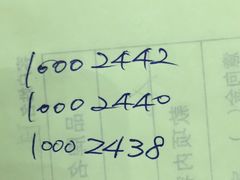 1000 2442
1000 2440
1000 2438